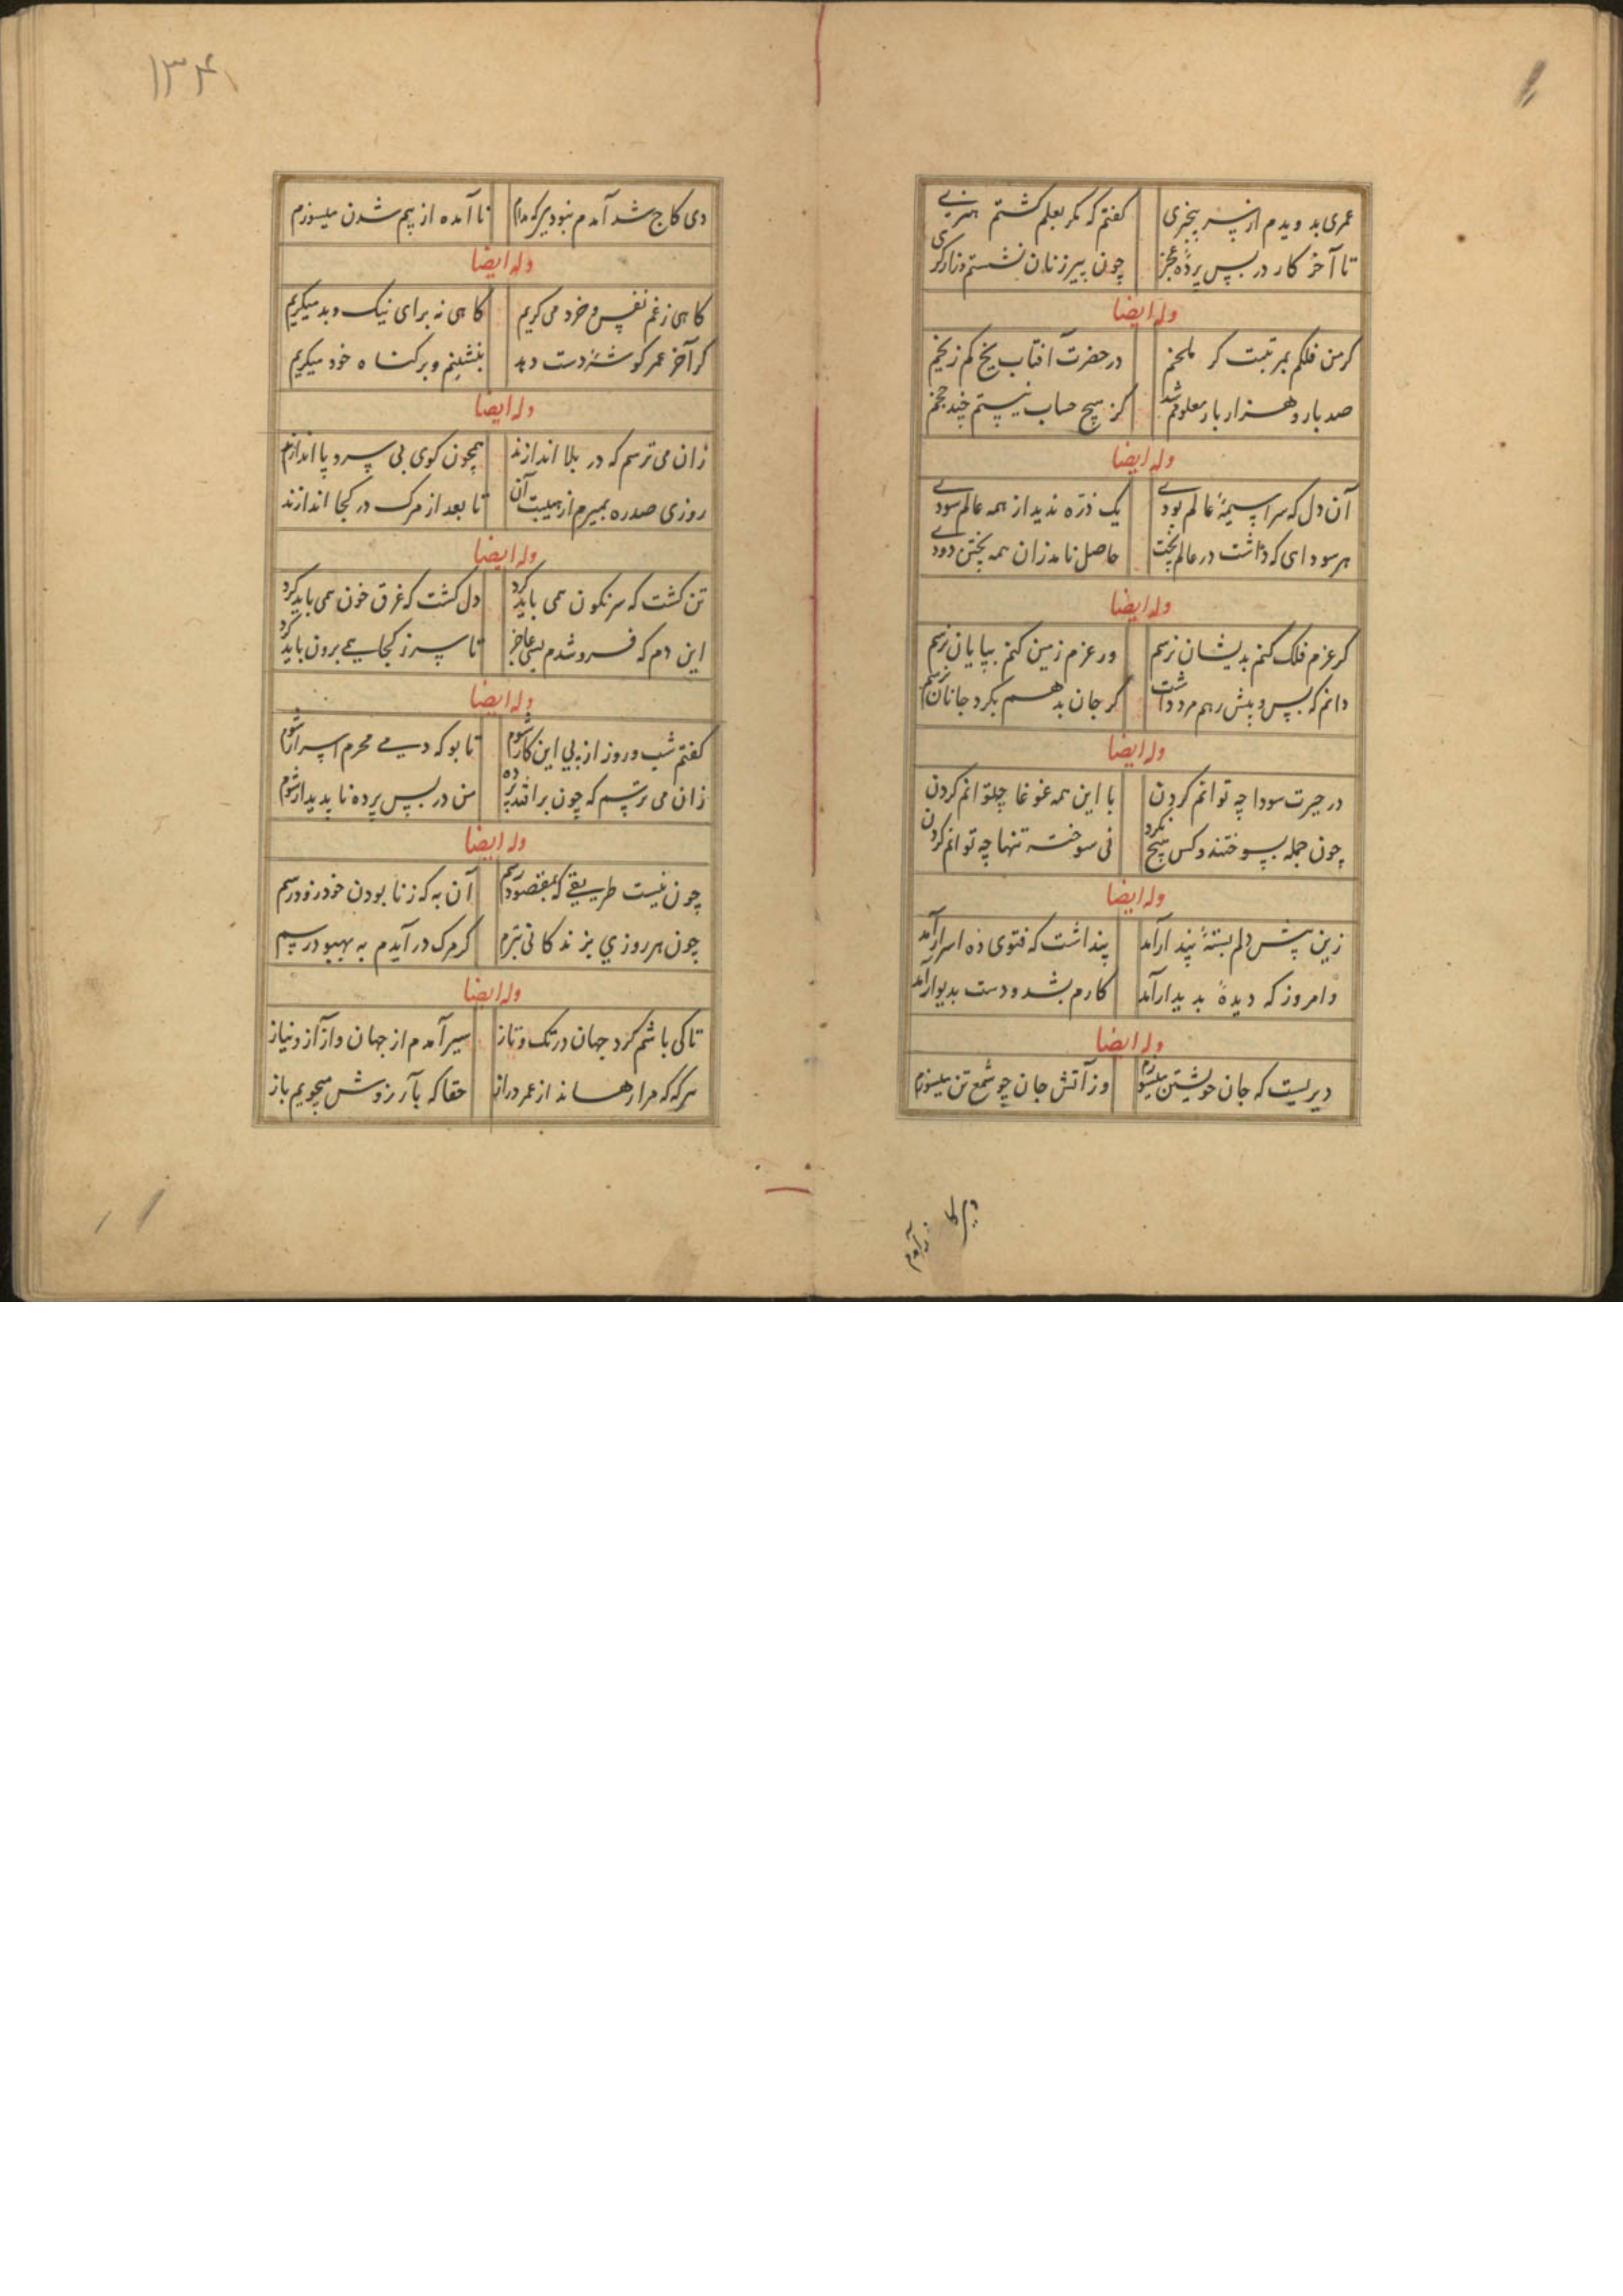 عمری بدویدم از سر بیخبری گفتم که مگر بعلم گشتم هنری
تا آخر کار در پس پردهٔ عجز چون پیرزنان نشستم و نارکری
وله ایضا
کر من فلکم بمرتبت کر در حضرت آفتاب یخ کم ز یخم
صد بار و هزار بار معلومم شد کز هیچ حساب نیستم چند
وله ایضا
آن دل که سراسیمهٔ عالم بودی یک ذره ندید از همه عالم سودی
هر سودای که داشت در عالم پخت حاصل نامد زان همه پختن دودی
وله ایضا
کر عزم فلک کنم بدیشان نرسم ور عزم زمین کنم بپایان نرسم
دانم که پس و پیش رهم مرد داشت کر جان بدهم بکرد جانان نرسم
وله ایضا
در حیرت سودا چه توانم کردن با این همه غوغا چتوانم کردن
چون جمله بسوختند و کس هیچ نکرد نی سوخته تنها چه توانم کردن
وله ایضا
زین پیش دلم بستهٔ پندار آمد پنداشت که فتوی ده اسرار آمد
وامروز که دیدهٔ بدیدار آمد کارم بشد و دست بدیوار آمد
وله ایضا
دیریست که جان خویشتن میسوزم وز آتش جان چو شمع تن میسوزم
۱۳۴
دی کاج شد آمدم نبود نا آمده از بیم شدن میسوزم
وله ایضا
کاهی ز غم نفس و خرد می کریم کاهی نه برای نیک و بد میکریم
کر آخر عمر کوشهٔ دست دهد بنشینم و بر کناه خود میکریم
وله ایضا
زان می ترسم که در بلا اندازند همچون کوی بی سر و پا اندازند
روزی صد ره بمیرم از هیبت آن تا بعد از مرک در کجا اندازند
وله ایضا
تن کشت که سرنکون همی باید کرد دل کشت که غرق خون همی باید کرد
این دم که فروشدم بسی عاجز تا سر ز کجا همی برون باید کرد
وله ایضا
کفتم شب و روز از پی این کار شوم تا بو که دمی محرم اسرار شوم
زان می ترسم که چون برافتد پرده من در پس پرده نا پدیدار شوم
وله ایضا
چون نیست طریقی که بمقصود رسم آن به که ز نا بودن خود زود رسم
چون هر روزی بزندکانی بترم کر مرک در آیدم به بهبود رسم
وله ایضا
تا کی باشم کرد جهان در تک و تاز سیر آمدم از جهان و از آز و نیاز
هرکه که مرا رهاند از عمر دراز حقا که بآرزوش میجویم باز